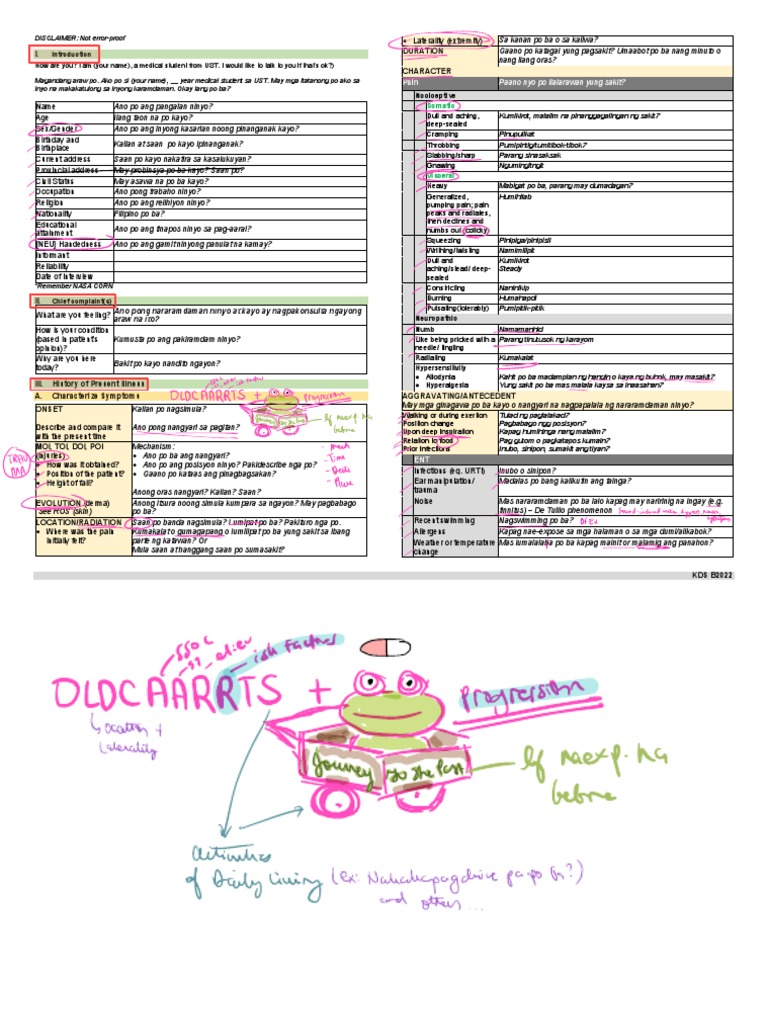 DISCLAIMER: Not error-proof
I. Introduction
How are you? I am (your name), a medical student from UST. I would like to talk to you if that's ok?)
Magandang araw po. Ako po si (your name), __ year medical student sa UST. May mga itatanong po ako sa
inyo na makakatulong sa inyong karamdaman. Okay lang po ba?
Name Ano po ang pangalan ninyo?
Age Ilang taon na po kayo?
Sex/Gender Ano po ang inyong kasarian noong pinanganak kayo?
Birthday and
Birthplace
Kailan at saan po kayo ipinanganak?
Current address Saan po kayo nakatira sa kasalukuyan?
Provincial address May probinsya po ba kayo? Saan po?
Civil Status May asawa na po ba kayo?
Occupation Ano pong trabaho ninyo?
Religion Ano po ang relihiyon ninyo?
Nationality Filipino po ba?
Educational
attainment
Ano po ang tinapos ninyo sa pag-aaral?
[NEU] Handedness Ano po ang gamit ninyong panulat na kamay?
Informant
Reliability
Date of Interview
*Remember NASA CORN
II. Chief complaint(s)
What are you feeling? Ano pong nararamdaman ninyo at kayo ay nagpakonsulta ngayong
araw na ito?
How is your condition
(based in patient's
opinion)?
Kumusta po ang pakiramdam ninyo?
Why are you here
today?
Bakit po kayo nandito ngayon?
III. History of Present Illness
A. Characterize Symptoms
OLDCAARRTS + progression
ONSET Kailan po nagsimula?
Describe and compare it
with the present time
Ano pong nangyari sa pagitan?
MOI, TOI, DOI, POI
(injuries)
How was it obtained?
Position of the patient?
Height of fall?
Mechanism:
Ano po ba ang nangyari?
Ano po ang posisyon ninyo? Pakidescribe nga po?
Gaano po kataas ang pinagbagsakan?
Anong oras nangyari? Kailan? Saan?
- Mech
- Time
- Date
- Place
EVOLUTION (derma)
*See ROS (skin)
Anong itsura noong simula kumpara sa ngayon? May pagbabago
po ba?
LOCATION/RADIATION
Where was the pain
initially felt?
Saan po banda nagsimula? Lumipat po ba? Pakituro nga po.
Kumakalat o gumagapang o lumilipat po ba yung sakit sa ibang
parte ng katawan? Or
Mula saan at hanggang saan po sumasakit?
Laterality (extremity) Sa kanan po ba o sa kaliwa?
DURATION Gaano po katagal yung pagsakit? Umaabot po ba nang minuto o
nang ilang oras?
CHARACTER
Pain Paano nyo po ilalarawan yung sakit?
Nociceptive
Somatic
Dull and aching,
deep-sealed
Kumikirot, malalim na pinanggagalingan ng sakit?
Cramping Pinupulikat
Throbbing Pumipintig/tumitibok-tibok?
Stabbing/sharp Parang sinasaksak
Gnawing Ngumingitngit
Visceral
Heavy Mabigat po ba, parang may dumadagan?
Generalized,
pumping pain; pain
peaks and radiates,
then declines and
numbs out (colicky)
Humihilab
Squeezing Pinipiga/pinipisil
Writhing/twisting Namimilipit
Dull and
aching/stead/ deep-
sealed
Kumikirot
Steady
Constricting Naninikip
Burning Humahapdi
Pulsating(tolerably) Pumipitik-pitik
Neuropathic
Numb Namamanhid
Like being pricked with a
needle/ tingling
Parang tinutusok ng karayom
Radiating Kumakalat
Hypersensitivity
Allodynia
Hyperalgesia
Kahit po ba madampian ng hangin o kaya ng bulak, may masakit?
Yung sakit po ba mas malala kaysa sa inaasahan?
AGGRAVATING/ANTECEDENT
May mga ginagawa po ba kayo o nangyari na nagpapalala ng nararamdaman ninyo?
Walking or during exertion Tulad ng paglalakad?
Position change Pagbabago ng posisyon?
Upon deep inspiration Kapag humihinga nang malalim?
Relation to food Pag gutom o pagkatapos kumain?
Prior infections Inubo, sinipon, sumakit ang tiyan?
ENT
Infections (eg. URTI) Inubo o sinipon?
Ear manipulation/
trauma
Madalas po bang kalikutin ang tainga?
Noise Mas nararamdaman po ba lalo kapag may narinig na ingay (e.g.
tinnitus) – De Tullio phenomenon
Recent swimming Nagswimming po ba?
Allergens Kapag nae-expose sa mga halaman o sa mga dumi/alikabok?
Weather or temperature
change
Mas lumalala ba po ba kapag mainit or malamig ang panahon?
KDS B2022
SSOC
eliev
isk factors
OLDCAARRTS + progression
Location +
Laterality
Journey to the Past
if naexp. na
before
Activities
of Daily living (ex: Nakakapagdrive pa po ba?)
and others ...